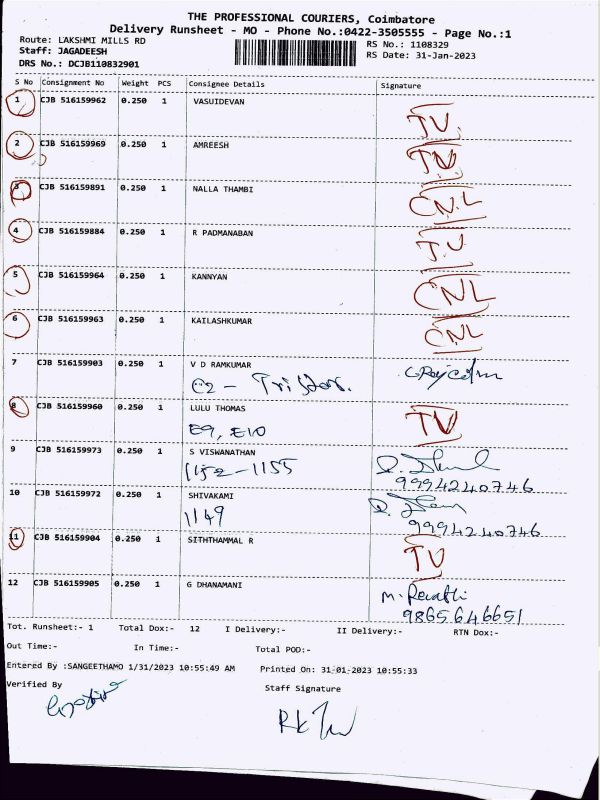 THE PROFESSIONAL COURIERS, Coimbatore
Delivery Runsheet - MO - Phone No.:0422-3505555 - Page No.:1
Route: LAKSHMI MILLS RD
RS No.: 1108329
Staff: JAGADEESH
RS Date: 31-Jan-2023
DRS No.: DCJB110832901
S No Consignment No Weight PCS Consignee Details Signature
1 CJB 516159962 0.250 1 VASUIDEVAN TV
2 CJB 516159969 0.250 1 AMREESH TV
3 CJB 516159891 0.250 1 NALLA THAMBI CNL
4 CJB 516159884 0.250 1 R PADMANABAN TV
5 CJB 516159964 0.250 1 KANNYAN CNL
6 CJB 516159963 0.250 1 KAILASHKUMAR CNL
7 CJB 516159903 0.250 1 V D RAMKUMAR
8 CJB 516159960 0.250 1 LULU THOMAS TV
E9, E10
9 CJB 516159973 0.250 1 S VISWANATHAN
1152-1155 9994240746
10 CJB 516159972 0.250 1 SHIVAKAMI
1149 9994240746
11 CJB 516159904 0.250 1 SITHTHAMMAL R TV
12 CJB 516159905 0.250 1 G DHANAMANI
M. Revathi
9865646651
Tot. Runsheet:- 1 Total Dox:- 12 I Delivery:- II Delivery:- RTN Dox:-
Out Time:- In Time:- Total POD:-
Entered By :SANGEETHAMO 1/31/2023 10:55:49 AM Printed On: 31-01-2023 10:55:33
Verified By
Staff Signature